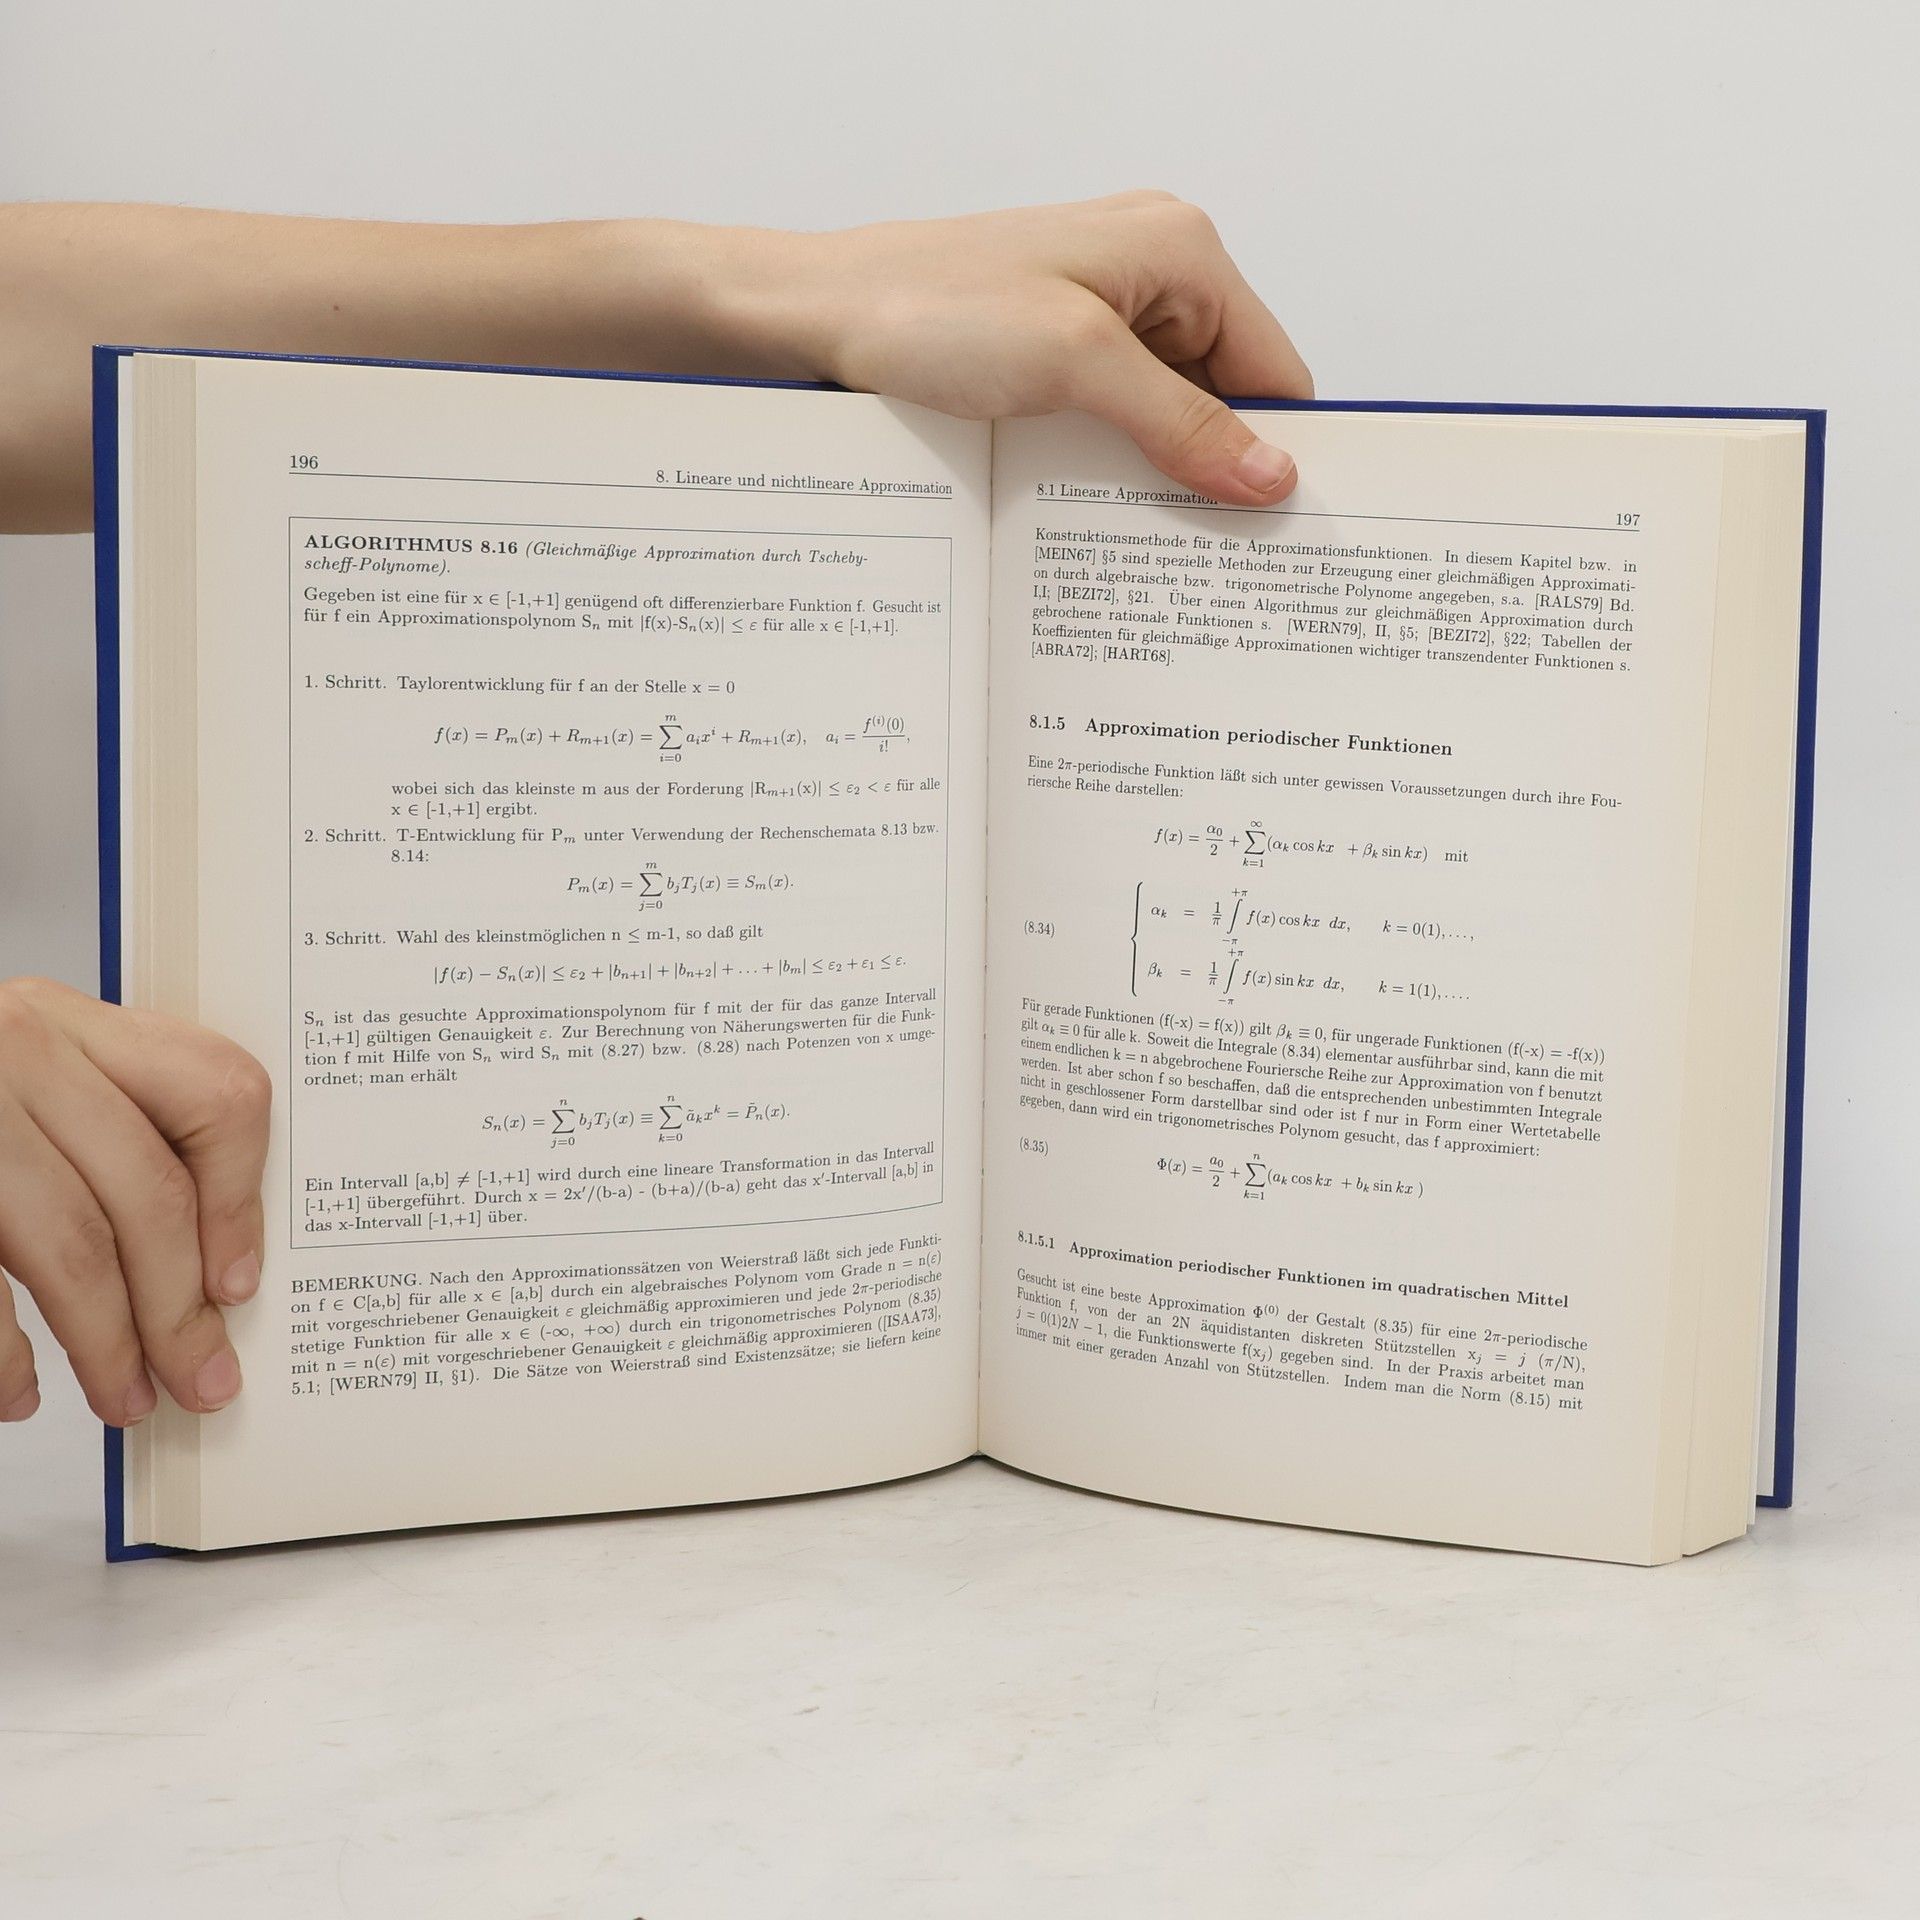 196
8. Lineare und nichtlineare Approximation
ALGORITHMUS 8.16 (Gleichmäßige Approximation durch Tscheby-
scheff-Polynome).
Gegeben ist eine für x ∈ [-1,+1] genügend oft differenzierbare Funktion f. Gesucht ist
für f ein Approximationspolynom Sₙ mit |f(x)-Sₙ(x)| ≤ ε für alle x ∈ [-1,+1].
1. Schritt. Taylorentwicklung für f an der Stelle x = 0
f(x) = Pₘ(x) + Rₘ₊₁(x) = ∑_{i=0}^{m} aᵢxⁱ + Rₘ₊₁(x), aᵢ = f⁽ⁱ⁾(0)/i!,
wobei sich das kleinste m aus der Forderung |Rₘ₊₁(x)| ≤ ε₂ < ε für alle
x ∈ [-1,+1] ergibt.
2. Schritt. T-Entwicklung für Pₘ unter Verwendung der Rechenschemata 8.13 bzw.
8.14:
Pₘ(x) = ∑_{j=0}^{m} bⱼTⱼ(x) ≡ Sₘ(x).
3. Schritt. Wahl des kleinstmöglichen n ≤ m-1, so daß gilt
|f(x) − Sₙ(x)| ≤ ε₂ + |bₙ₊₁| + |bₙ₊₂| + … + |bₘ| ≤ ε₂ + ε₁ ≤ ε.
Sₙ ist das gesuchte Approximationspolynom für f mit der für das ganze Intervall
[-1,+1] gültigen Genauigkeit ε. Zur Berechnung von Näherungswerten für die Funk-
tion f mit Hilfe von Sₙ wird Sₙ mit (8.27) bzw. (8.28) nach Potenzen von x umge-
ordnet; man erhält
Sₙ(x) = ∑_{j=0}^{n} bⱼTⱼ(x) ≡ ∑_{k=0}^{n} ãₖxᵏ = P̃ₙ(x).
Ein Intervall [a,b] ≠ [-1,+1] wird durch eine lineare Transformation in das Intervall
[-1,+1] übergeführt. Durch x = 2x′/(b-a) - (b+a)/(b-a) geht das x′-Intervall [a,b] in
das x-Intervall [-1,+1] über.
BEMERKUNG. Nach den Approximationssätzen von Weierstraß läßt sich jede Funkti-
on f ∈ C[a,b] für alle x ∈ [a,b] durch ein algebraisches Polynom vom Grade n = n(ε)
mit vorgeschriebener Genauigkeit ε gleichmäßig approximieren und jede 2π-periodische
stetige Funktion für alle x ∈ (-∞, +∞) durch ein trigonometrisches Polynom (8.35)
mit n = n(ε) mit vorgeschriebener Genauigkeit ε gleichmäßig approximieren ([ISAA73],
5.1; [WERN79] II, §1). Die Sätze von Weierstraß sind Existenzsätze; sie liefern keine
8.1 Lineare Approximation
197
Konstruktionsmethode für die Approximationsfunktionen. In diesem Kapitel bzw. in
[MEIN67] §5 sind spezielle Methoden zur Erzeugung einer gleichmäßigen Approximati-
on durch algebraische bzw. trigonometrische Polynome angegeben, s.a. [RALS79] Bd.
I,I; [BEZI72], §21. Über einen Algorithmus zur gleichmäßigen Approximation durch
gebrochene rationale Funktionen s. [WERN79], II, §5; [BEZI72], §22; Tabellen der
Koeffizienten für gleichmäßige Approximationen wichtiger transzendenter Funktionen s.
[ABRA72]; [HART68].
8.1.5 Approximation periodischer Funktionen
Eine 2π-periodische Funktion läßt sich unter gewissen Voraussetzungen durch ihre Fou-
riersche Reihe darstellen:
f(x) = α₀/2 + ∑_{k=1}^{∞} (αₖ cos kx + βₖ sin kx) mit
(8.34)
αₖ = 1/π ∫_{−π}^{+π} f(x) cos kx dx, k = 0(1), …,
βₖ = 1/π ∫_{−π}^{+π} f(x) sin kx dx, k = 1(1), ….
Für gerade Funktionen (f(-x) = f(x)) gilt βₖ ≡ 0, für ungerade Funktionen (f(-x) = -f(x))
gilt αₖ ≡ 0 für alle k. Soweit die Integrale (8.34) elementar ausführbar sind, kann die mit
einem endlichen k = n abgebrochene Fouriersche Reihe zur Approximation von f benutzt
werden. Ist aber schon f so beschaffen, daß die entsprechenden unbestimmten Integrale
nicht in geschlossener Form darstellbar sind oder ist f nur in Form einer Wertetabelle
gegeben, dann wird ein trigonometrisches Polynom gesucht, das f approximiert:
(8.35)
Φ(x) = a₀/2 + ∑_{k=1}^{n} (aₖ cos kx + bₖ sin kx )
8.1.5.1 Approximation periodischer Funktionen im quadratischen Mittel
Gesucht ist eine beste Approximation Φ⁽⁰⁾ der Gestalt (8.35) für eine 2π-periodische
Funktion f, von der an 2N äquidistanten diskreten Stützstellen xⱼ = j (π/N),
j = 0(1)2N − 1, die Funktionswerte f(xⱼ) gegeben sind. In der Praxis arbeitet man
immer mit einer geraden Anzahl von Stützstellen. Indem man die Norm (8.15) mit